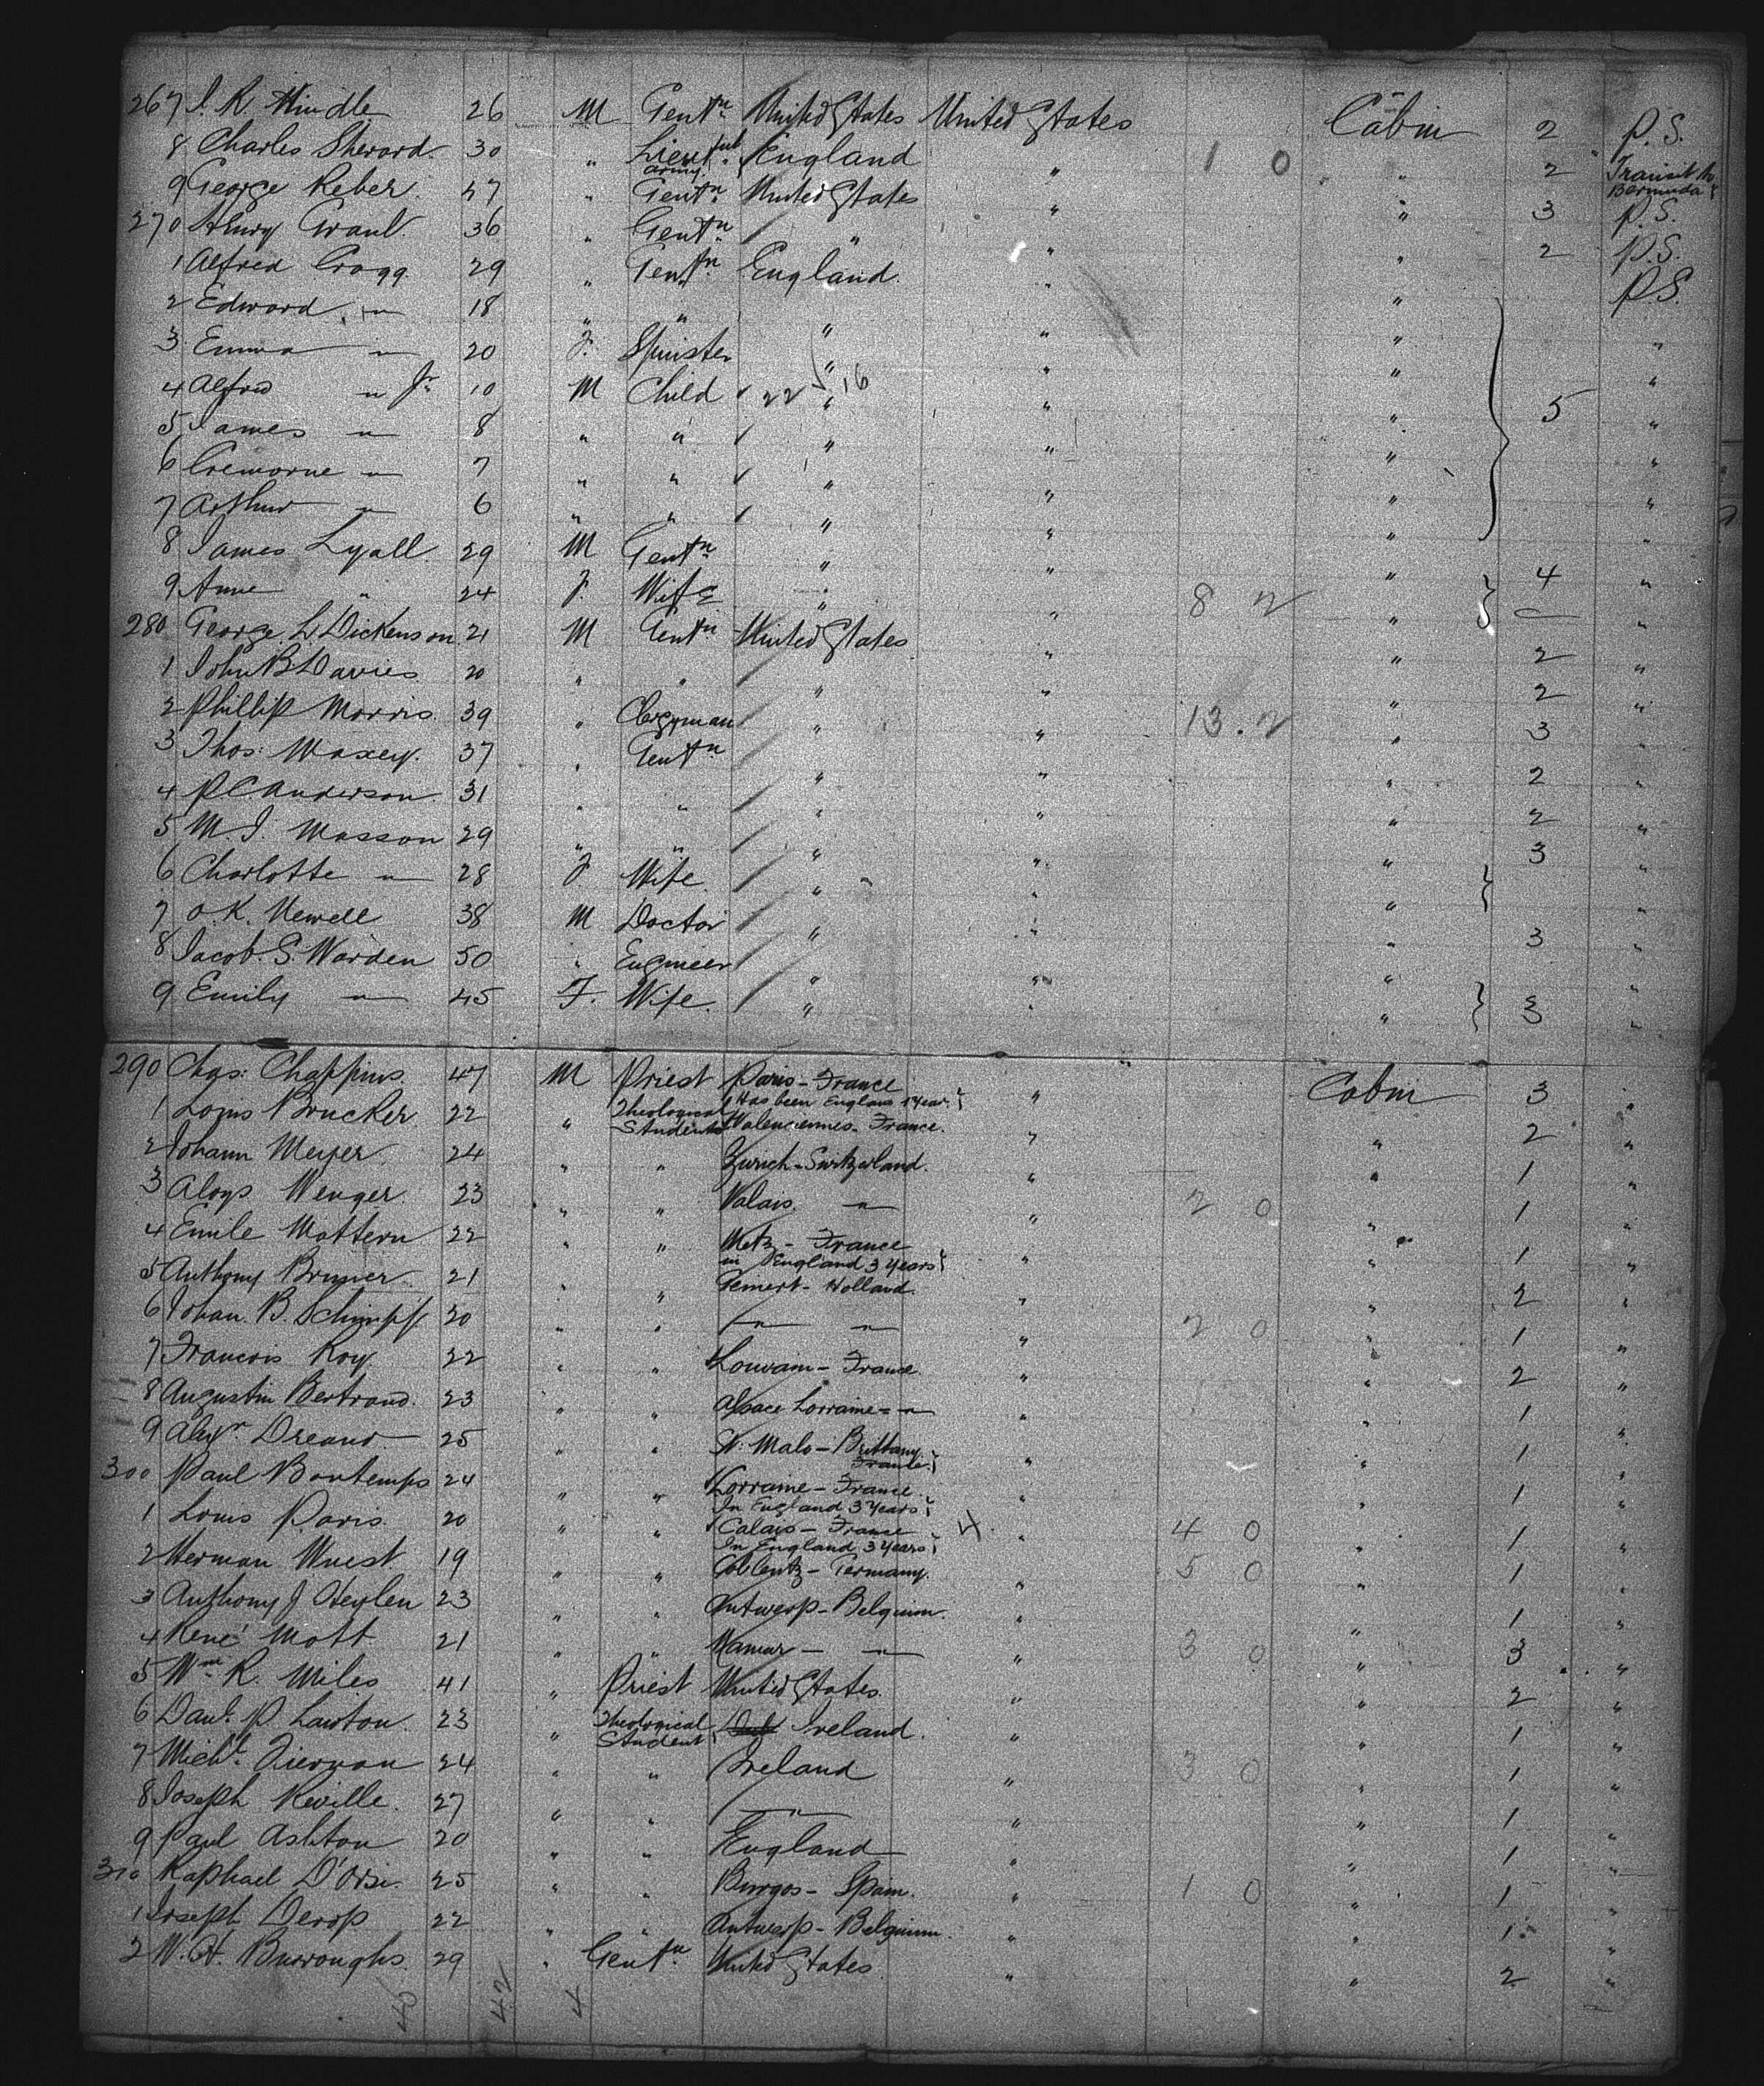 267 J. R. Hindle 26 M Gentn United States United States Cabin 2 P.S.
8 Charles Sherard 30 " Lieut army England " 1 0 " 2 Transit to Bermuda
9 George Reber 47 " Gentn United States " " 3 P.S.
270 Henry Grant 36 " Gentn " " " 2 P.S.
1 Alfred Cragg 29 " Gentn England " " P.S.
2 Edward " 18 " " " " " "
3 Emma " 20 F. Spinster " " " "
4 Alfred " Jr 10 M Child 22 16 " " " 5 "
5 James " 8 " " " " " "
6 Cremorne " 7 " " " " " "
7 Arthur " 6 " " " " " "
8 James Lyall 29 M Gentn " " " 4 "
9 Anne " 24 F. Wife " " 8 2 " "
280 George L Dickenson 21 M Gentn United States " " 2 "
1 John B Davies 20 " " " " " 2 "
2 Phillip Morris 39 " Clergyman " " 13.2 " 3 "
3 Thos: Waxey 37 " Gentn " " " 2 "
4 P C Anderson 31 " " " " " 2 "
5 M. J. Masson 29 " " " " " 3 "
6 Charlotte " 28 F. Wife " " " "
7 O. K. Newell 38 M Doctor " " " 3 "
8 Jacob. S. Warden 50 " Engineer " " " "
9 Emily " 45 F. Wife. " " " 3 "
290 Chas: Chappins. 47 M Priest Paris - France " Cabin 3 "
Has been England 1 year
1 Louis Brucker 22 " Theological Student Valenciennes - France. " 2 "
2 Johann Meyer 24 " " Zurich - Switzerland. " " 1 "
3 Aloys Wenger 23 " " Valais. " " 2 0 " 1 "
4 Emile Mattern 22 " " Metz - France " " 1 "
in England 3 years
5 Anthony Bruner 21 " " Gemert - Holland. " " 2 "
6 Johan. B. Schimpff 20 " " " " " 2 0 " 1 "
7 Francois Roy 22 " " Louvain - France " " 2 "
8 Augustin Bertrand. 23 " " Alsace Lorraine - " " " 1 "
9 Alexr. Dreand 25 " " St. Malo - Brittany France " " 1 "
300 Paul Bontemps 24 " " Lorraine - France " " 1 "
In England 3 Years
1 Louis Paris 20 " " Calais - France 4 " 4 0 " 1 "
In England 3 years
2 Herman Wuest 19 " " Coblentz - Germany. " 5 0 " 1 "
3 Anthony J Heylen 23 " " Antwerp - Belgium. " " 1 "
4 René Mott 21 " " Namur - " " 3 0 " 3 "
5 Wm. R. Miles 41 " Priest United States. " " 2 "
6 Danl. P. Lawton 23 " Theological Student Ireland. " " 1 "
7 Michl. Tiernan 24 " " Ireland " 3 0 " 1 "
8 Joseph Keville. 27 " " " " " 1 "
9 Paul Ashton 20 " " England " " 1 "
310 Raphael D'Orsi. 25 " " Burgos - Spain. " 1 0 " 1 "
1 Joseph Derop 22 " " Antwerp - Belgium " " 1 "
2 W. H. Burroughs. 29 " Gentn United States " " 2 "
40 42 4